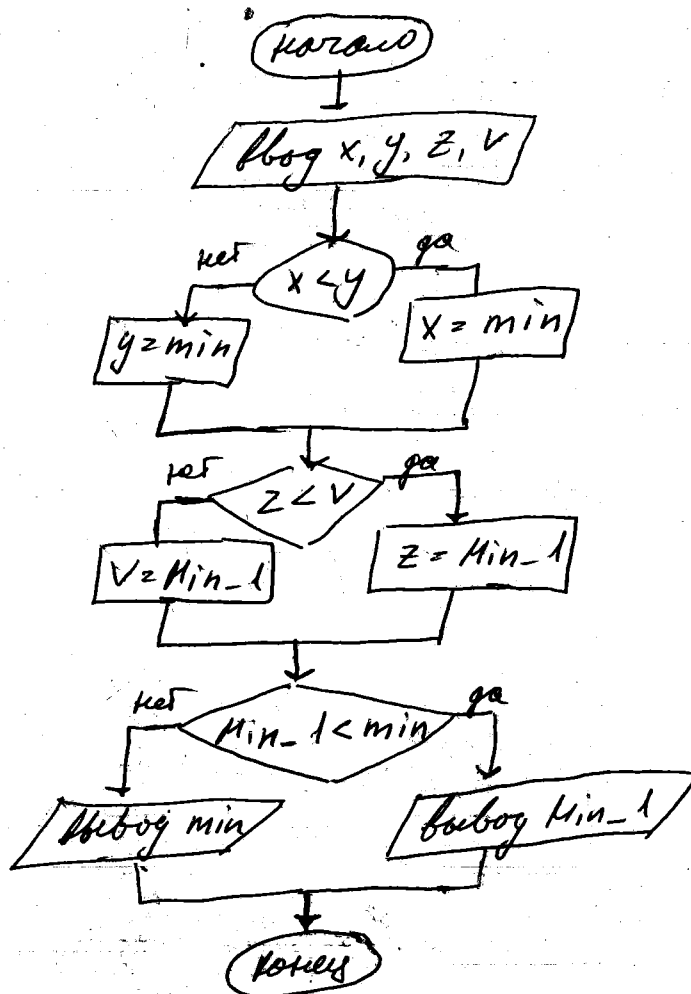 начало
Ввод x, y, z, v
нет да
x < y
y = min x = min
нет да
z < v
v = Min_1 z = Min_1
нет да
Min_1 < min
вывод min вывод Min_1
конец